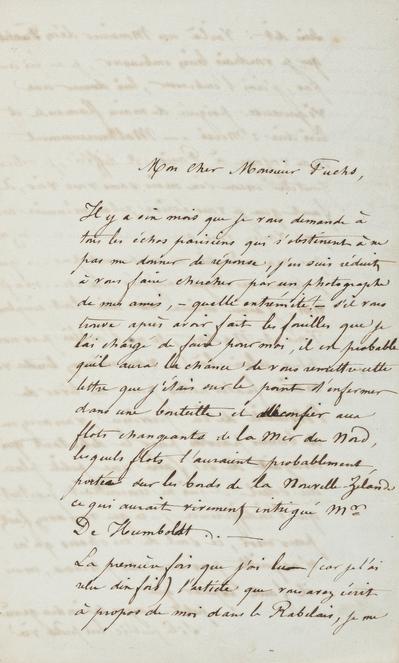 Mon cher Monsieur Fuchs,
Il y a six mois que je vous demande à
tous les échos parisiens qui s'obstinent à ne
pas me donner de réponse; j'en suis réduit
à vous faire chercher par un photographe
de mes amis, – quelle extrémité! – s'il vous
trouve après avoir fait les fouilles que je
l'ai chargé de faire pour moi, il est probable
qu'il aura la chance de vous remettre cette
lettre que j'étais sur le point d'enfermer
dans une bouteille et de confier aux
flots changeants de la Mer du Nord,
lesquels flots l'auraient probablement
portée sur les bords de la Nouvelle Zelande
ce qui aurait vivement intrigué Mr
De Humboldt. –
La première fois que j'ai lu – (car je l'ai
relu dix fois) l'article que vous avez écrit
à propos de moi dans le Rabelais, je me